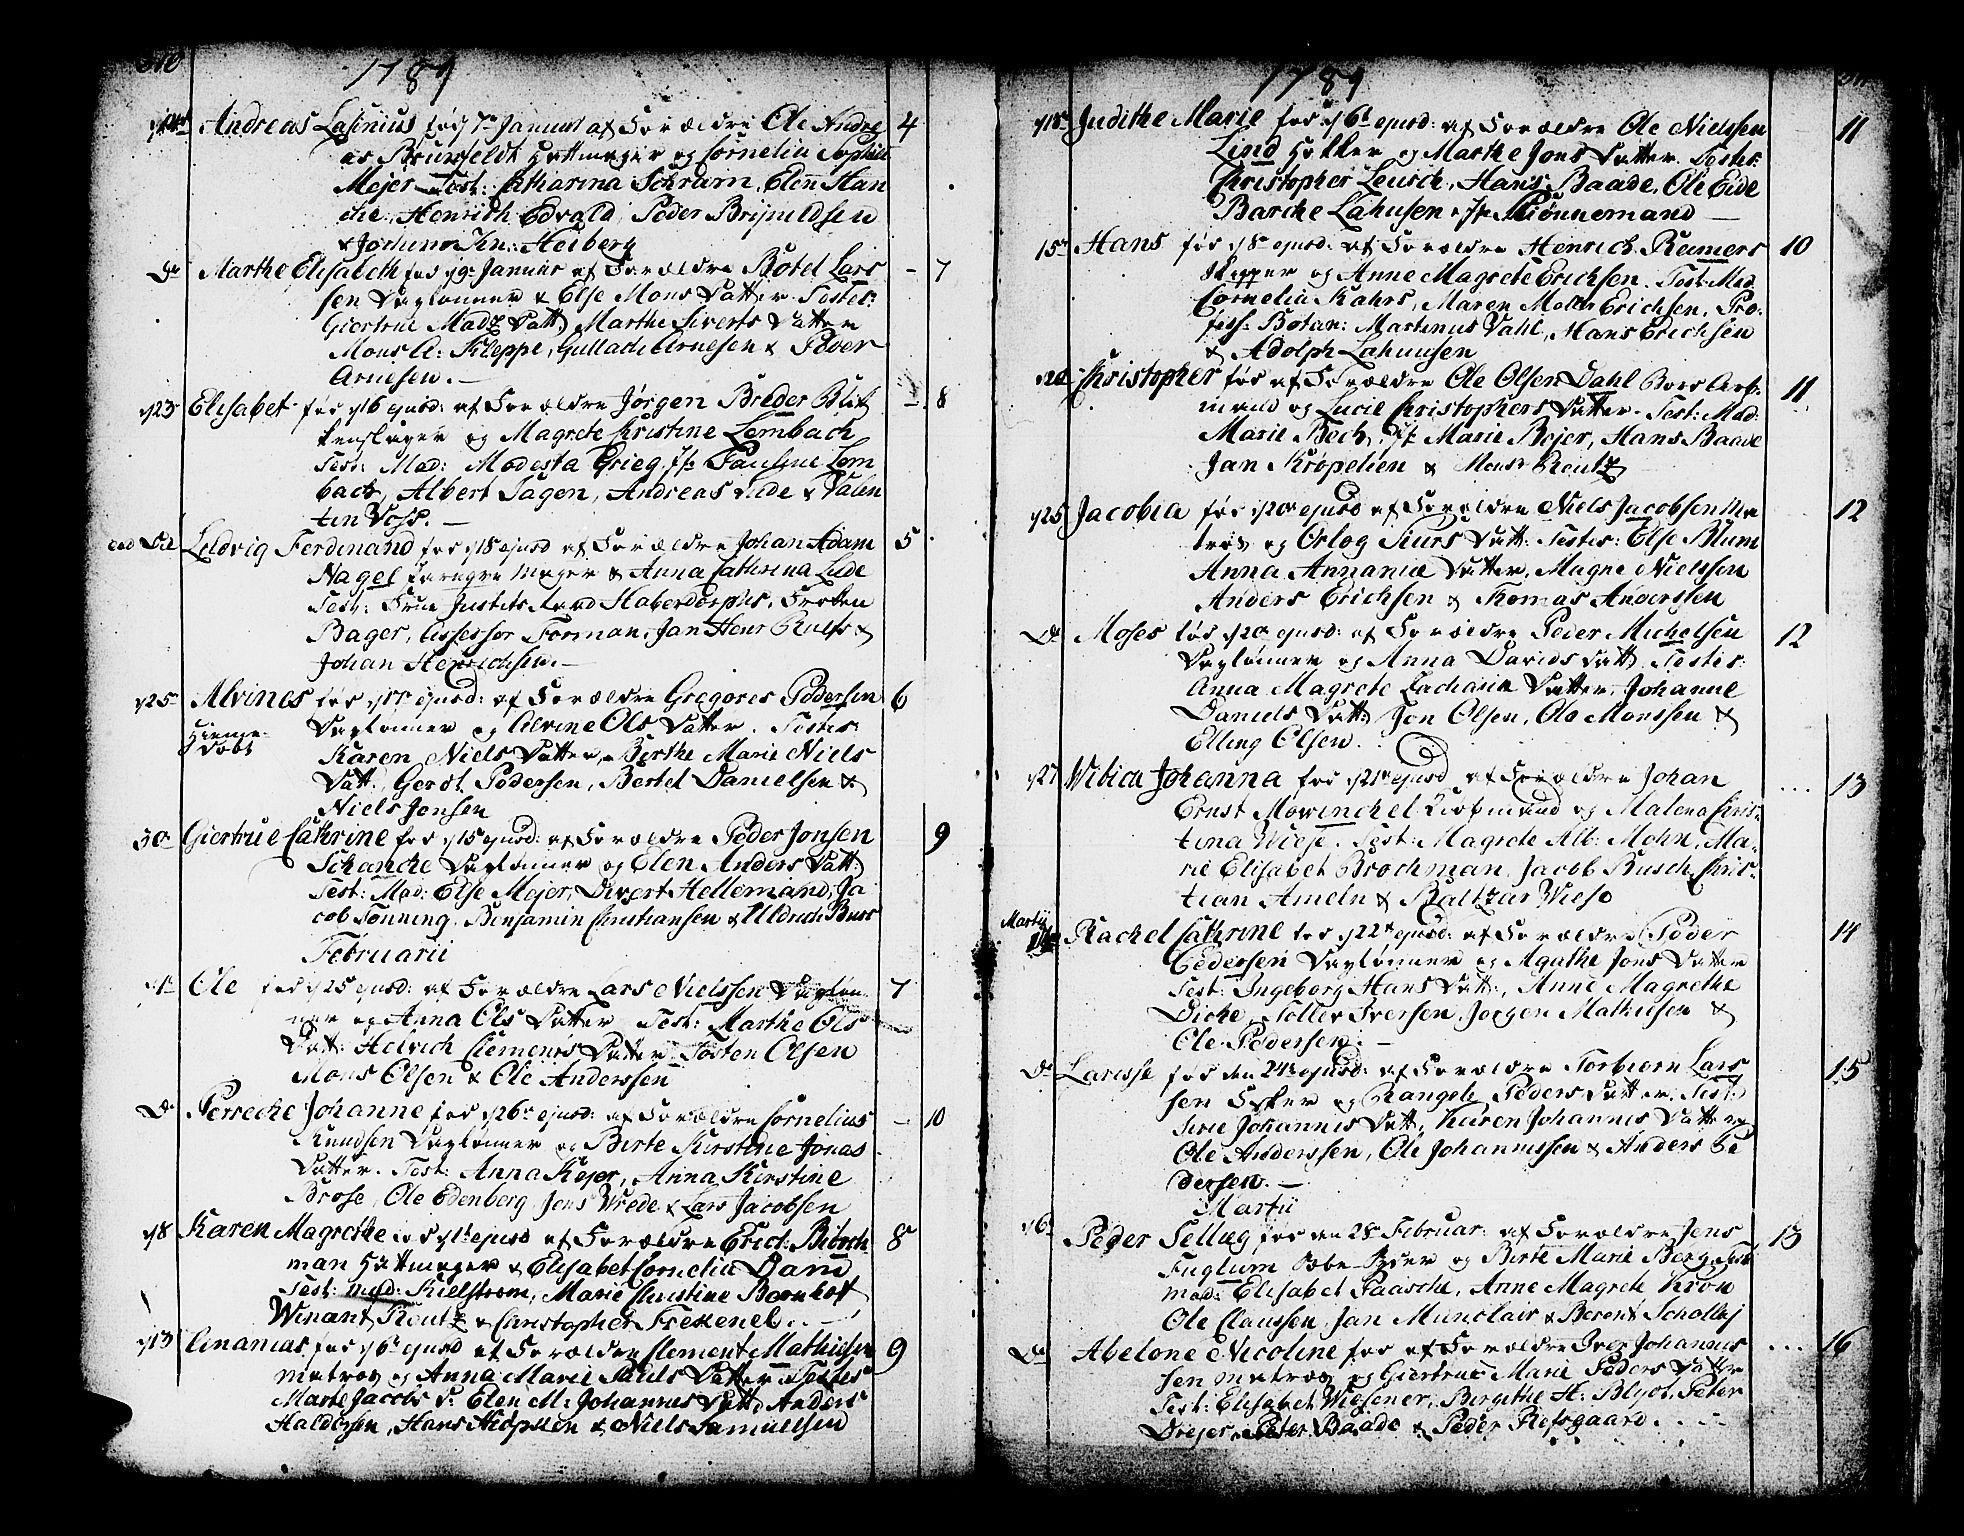 1789
Andreas Lasinius fød 7de Januar af Forældre Ole Andre 4
as Brunfeldt Hattmager og Cornelia Sophia
Mejer Test: Catharina Schram, Elen Han
che, Henrich Edvald, Peder
& Jochum Kn: Heiberg
Do Marthe Elisabeth fød 9de Januar af Forældre Botel Lars – 7
sen Daglønner & Else Mons Datter. Testes:
Giertrue Madz Datt, Marthe Siverts Datter
Mons A: Kleppe, Gullach Arnesen & Peder
Arnesen. –
23 Elisabet fød 16 ejusd: af Forældre Jørgen Breder Blik – 8
kenslager og Magrete Kristine Lembach
Test: Mad: Modesta Grieg, Jfr Pauline Lem
bach, Albert Sagen, Andreas Lude & Valen
tin Voss. –
Ludvig Ferdinand fød 18 ejusd af Forældre Johan Adam 5
Nagel mager & Anna Cathrina Lude
Test: Frue Justits Raad Frøken
Bager, Assessor Forman, Jan Henr &
Johan Henrichsen. –
25 Alvines fød ejusd: af Forældre Gregores Pedersen 6
Hiemme Dagløner og Alvine Ols Datter. Testes:
døbt Karen Niels Datter, Birthe Marie Niels
Datt, Gerdt Pedersen, Bertel Danielsen &
Niels Jensen
30 Giertrue Cathrine fød 15 ejusd: af Forældre Peder Jonsen 9
Schancke Daglønner og Elen Anders Datt:
Test: Mad: Else Mejer, Divert Hellemand, Ja
cob Tønning, Benjamin Christiansen & Uldrich
Februarii
Ole fød 25 ejusd: af Forældre Lars Nielssen Dagløn 7
ner og Anna Ols Datter Test: Marthe Ols
Datt: Helvich Clements Datter Tosten Olsen
Mons Olsen & Ole Anderssen
Do Perrecke Johanne fød 26 ejusd: af Forældre Cornelius – 10
Knudsen Daglønner og Birte Kirstine Jonas
Datter. Test: Anna Kejer, Anna Kirstine
Brose, Ole Edenberg Jens Wrede & Lars Jacobsen
8 Karen Magrethe fød ejusd af Forældre Erich Biørch 8
man Hattmager & Elisabet Cornelia Dam
Test: Mad: Kielstrøm, Marie Christine Barnholt
Winant Reutz & Christopher
13 Ananias fød 6 ejusd af Forældre Clement Mathiesen 9
Matros og Anna Marie Pauls Datter Testes
Marte Jacobs D. Elen M: Johannes Datt, Anders
Haldorsen, Hans & Niels Samuelssen
1789
15 Judithe Marie fød 6te ejusd: af Forældre Ole Nielssen 11
Lind Høkker og Marthe Jons Datter. Testes:
Christopher Leusch, Hans Baade, Ole Eide
Barche Lahusen & Jfr Miønnemand –
15 Hans fød 8 ejusd. af Forældre Henrich Reimers 10
Skipper og Anne Magrete Erichsen. Test: Mad.
Cornelia Kahrs, Maren Møller Erichsen, Pro-
fess: Botan: Martinus Vahl, Hans Erichsen
& Adolph Lahuusen
Christopher fød af Forældre Ole Olsen Dahl Bors Arb. 11
mand og Lucie Christophers Datter. Test: Mad:
Marie Bech, Jfr Marie Bejer, Hans Baade
Jan Krøpelien & Monsr Reutz
25 Jacobia fød 20 ejusd af Forældre Niels Jacobsen Ma 12
tros og Orlog Siurs Datt: Testes: Else Blum
Anna Annaniæ Datter, Magne Nielssen
Anders Erichsen & Thomas Anderssen
Do Moses fød 20 ejusd: af Forældre Peder Michelsen 12
Dagløner og Anna Davids Datt. Testes:
Anna Magrete Zacharia Datter, Johanne
Daniels Datt. Jon Olsen, Ole Monssen &
Elling Olsen.
27 Wibica Johanna fød 21 ejusd af Forældre Johan .... 13
Ernst Mowinckel Kiøbmand og Malena Chris-
tina Wiese. Test: Magrete Alb: Mohn, Ma-
rie Elisabet Brochman, Jacob Busch, Chris-
tian Ameln & Baltzar Wiese
Martij
Rachel Cathrine fød 22 ejusd: af Forældre Peder 14
Pedersen Dagløner og Agathe Jons Datter
Test: Ingeborg Hans Datt:, Anne Magrethe
Dicke, Toller Iversen, Jørgen Mathiesen &
Ole Pedersen. –
Do Larisse fød den 24 ejusd: af Forældre Torbiørn Lars 15
sen Fisker og Rangele Peders Datter. Test:
Sirie Johannis Datt, Karen Johannes Datter
Ole Anderssen, Ole Johannissen & Anders Pe
dersen. –
Martii
6 Peder Tellæg fød den 28 Februar: af Forældre Jens 13
Fuglum og Birte Marie Berg. Test
Mad: Elisabet Paasche, Anne Magrete Kron
Ole Claussen, Jan Munclair & Berent
Do Abelone Nicoline fød af Forældre Iver Johannis ... 16
sen Matros og Giertrue Marie Peders Datter
Test: Elisabet Wiesener, Birgithe H: Blydt, Peter
Drejer, Peter Baade & Peder Refsgaard.